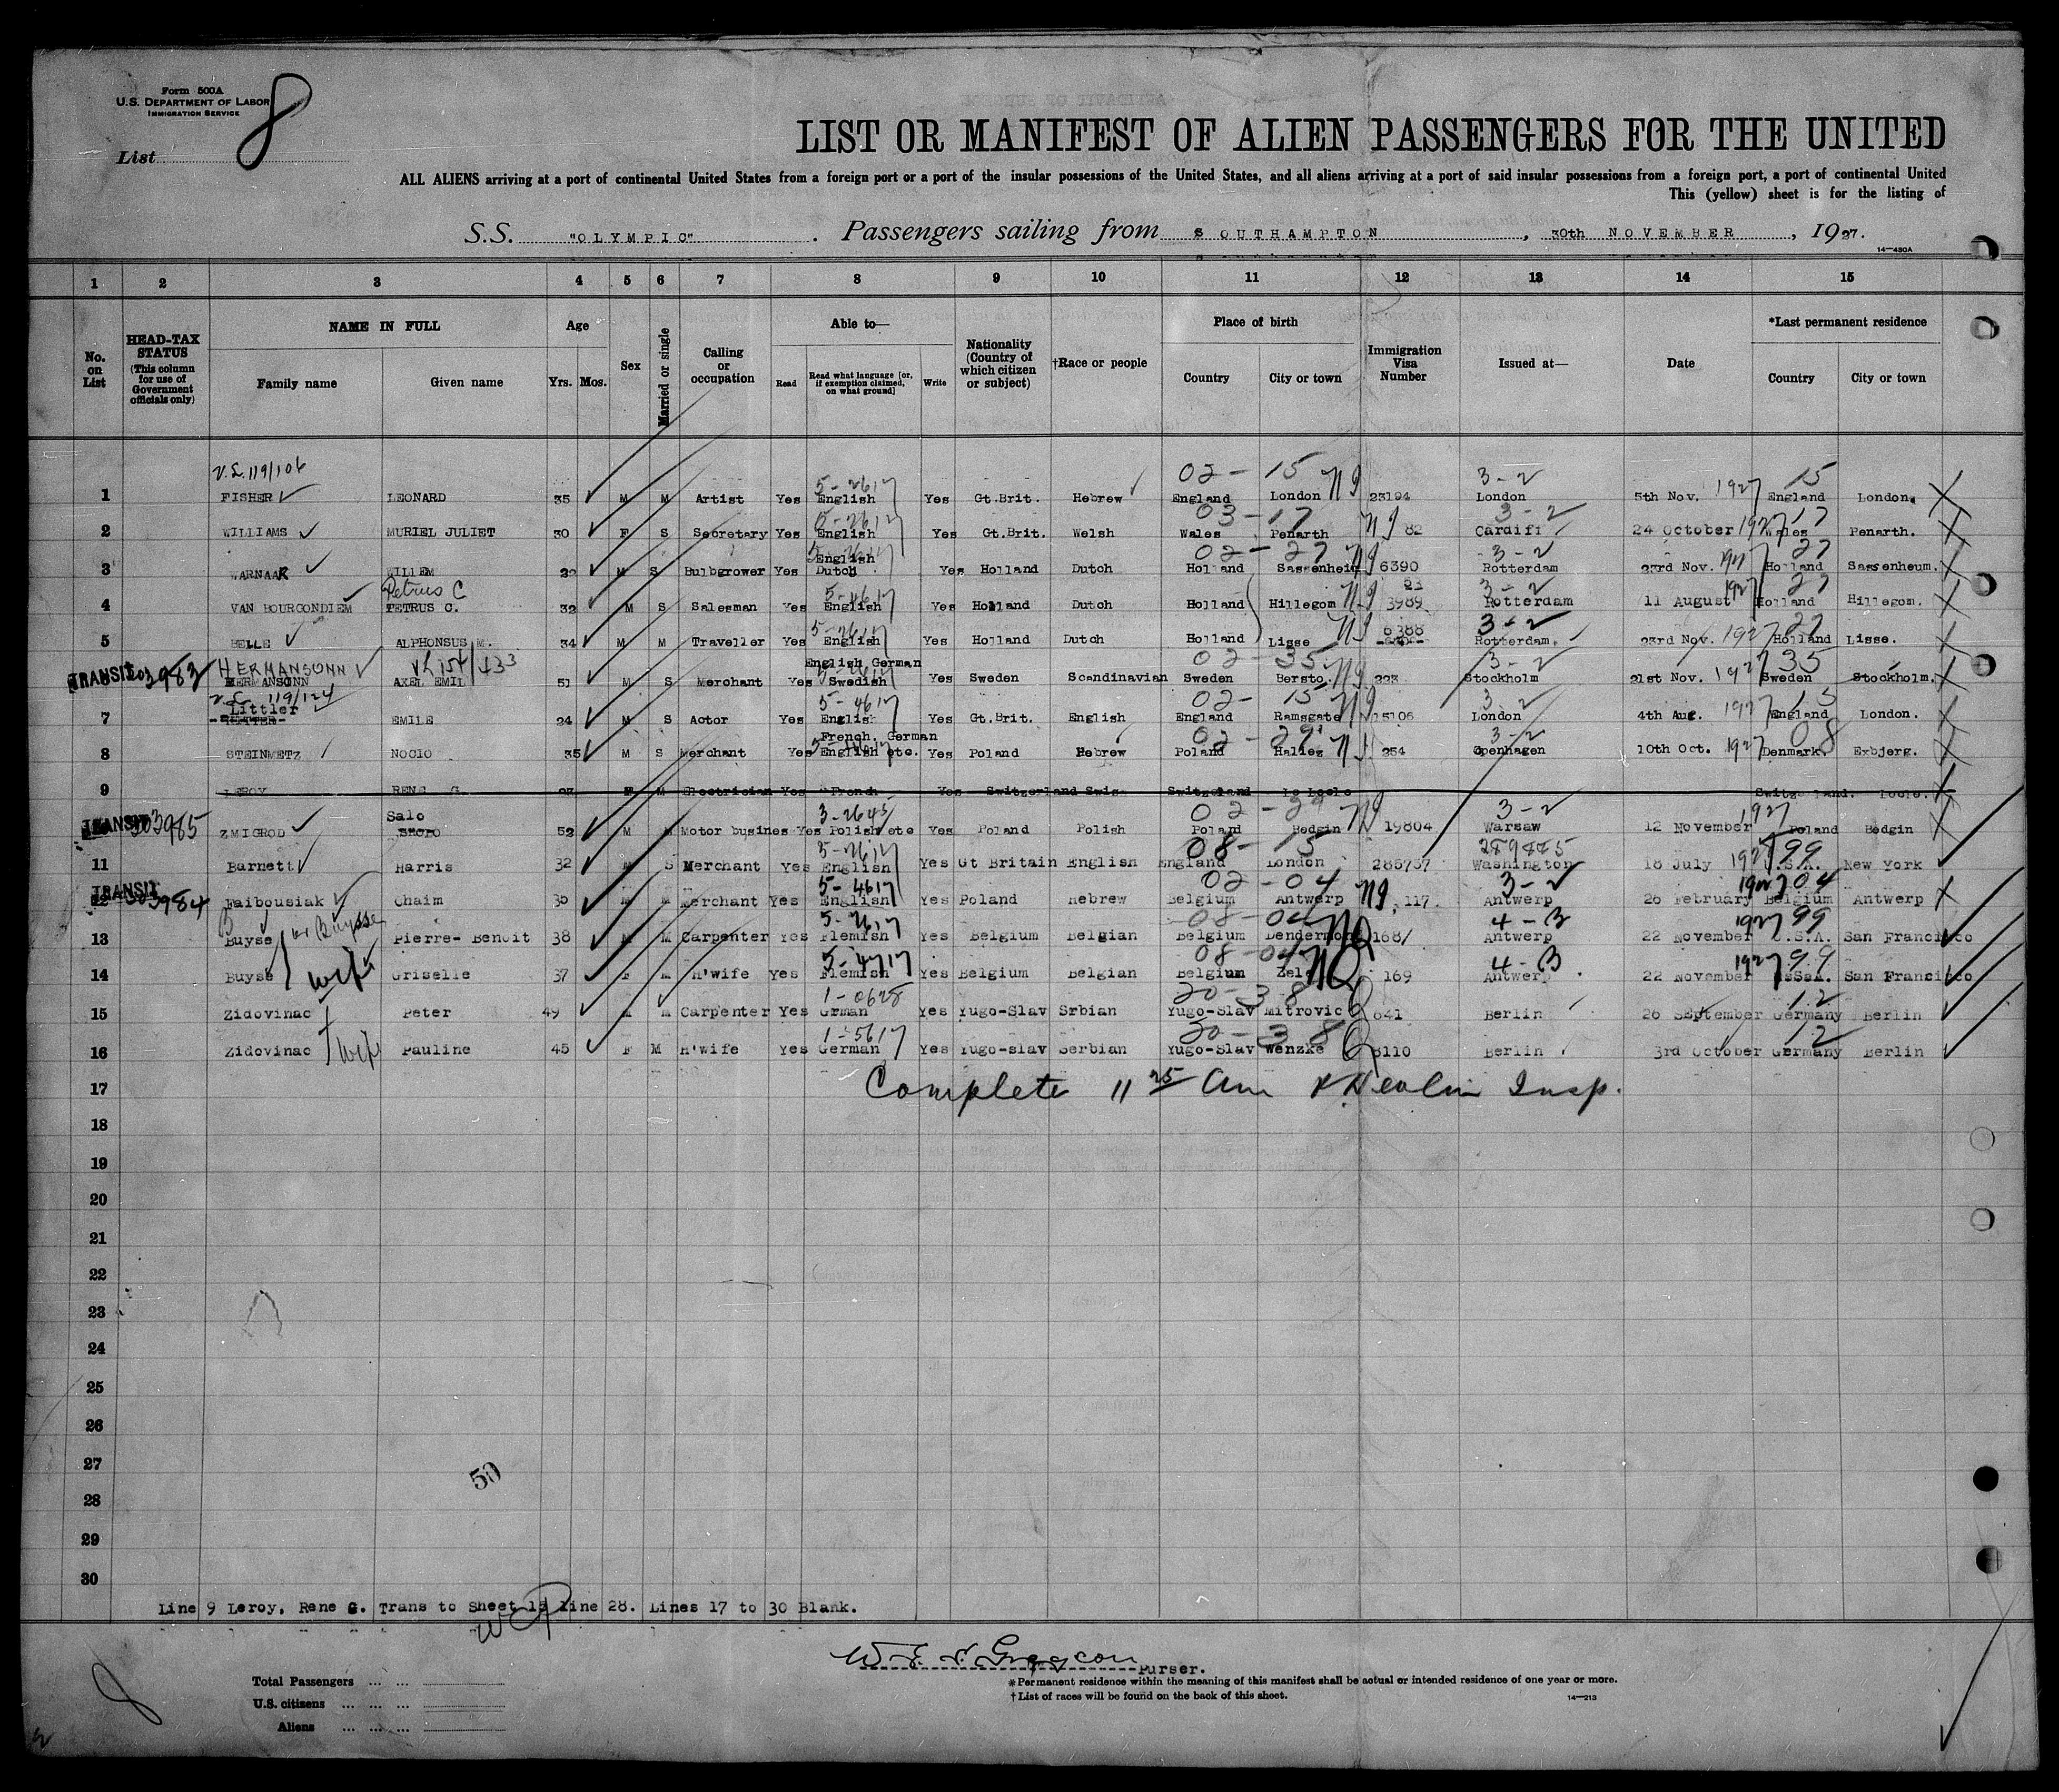 Form 500A
U.S. DEPARTMENT OF LABOR
IMMIGRATION SERVICE
List 8
LIST OR MANIFEST OF ALIEN PASSENGERS FOR THE UNITED
ALL ALIENS arriving at a port of continental United States from a foreign port or a port of the insular possessions of the United States, and all aliens arriving at a port of said insular possessions from a foreign port, a port of continental United
This (yellow) sheet is for the listing of
S.S. "OLYMPIC" . Passengers sailing from SOUTHAMPTON , 30th NOVEMBER , 1927.
14—430A
1 2 3 4 5 6 7 8 9 10 11 12 13 14 15
No. on List
HEAD-TAX STATUS (This column for use of Government officials only)
NAME IN FULL
Family name Given name
Age
Yrs. Mos.
Sex
Married or single
Calling or occupation
Able to—
Read Read what language [or, if exemption claimed, on what ground] Write
Nationality (Country of which citizen or subject)
†Race or people
Place of birth
Country City or town
Immigration Visa Number
Issued at—
Date
*Last permanent residence
Country City or town
V.L. 119/106 5-2617 02-15 3-2 15
1 FISHER LEONARD 35 M M Artist Yes English Yes Gt.Brit. Hebrew England London 23194 London 5th Nov. 1927 England London.
5-2617 03-17 3-2 17
2 WILLIAMS MURIEL JULIET 30 F S Secretary Yes English Yes Gt.Brit. Welsh Wales Penarth 82 Cardiff 24 October 1927 Wales Penarth.
English 02-27 3-2 27
3 WARNAAR WILLEM M S Bulbgrower Yes Dutch Yes Holland Dutch Holland Sassenheim 6390 Rotterdam 23rd Nov. 1927 Holland Sassenheum.
Petrus C 5-4617 23 3-2 27
4 VAN BOURGONDIEM PETRUS C. 32 M S Salesman Yes English Yes Holland Dutch Holland Hillegom 3989 Rotterdam 11 August 1927 Holland Hillegom.
5-2617 6388 3-2 27
5 BELLE ALPHONSUS M. 34 M M Traveller Yes English Yes Holland Dutch Holland Lisse Rotterdam. 23rd Nov. 1927 Holland Lisse.
HERMANSONN English German 02-35 3-2 35
TRANSIT 303983 HERMANSONN AXEL EMIL 51 M S Merchant Yes Swedish Yes Sweden Scandinavian Sweden Bersto. 323 Stockholm 21st Nov. 1927 Sweden Stockholm.
V.L. 119/124
Littler 5-4617 02-15 3-2 15
7 EMILE 24 M S Actor Yes English Yes Gt.Brit. English England Ramsgate 15106 London 4th Aug. 1927 England London.
French, German 02-29 3-2 08
8 STEINMETZ NOCIO 35 M S Merchant Yes English etc. Yes Poland Hebrew Poland Haliez 254 Copenhagen 10th Oct. 1927 Denmark. Exbjerg.
9 LEROY RENE G. M Electrician Yes French Yes Switzerland Swis Switzerland Le Locle Switzerland. Locle.
Salo 3-2645 02-29 3-2
TRANSIT 303985 ZMIGROD 52 M M Motor busines Yes Polish etc Yes Poland Polish Poland Bedgin 19804 Warsaw 12 November 1927 Poland Bedgin
5-2617 08-15 99
11 Barnett Harris 32 M S Merchant Yes English Yes Gt Britain English England London 286737 Washington 18 July 1927 U.S.A. New York
5-4617 02-04 3-2 04
TRANSIT 303984 Faibousiak Chaim 30 M M Merchant Yes English Yes Poland Hebrew Belgium Antwerp 117 Antwerp 26 February 1927 Belgium Antwerp
or Buysse 5-2617 08-04 4-3 99
13 Buyse Pierre- Benoit 38 M M Carpenter Yes Flemish Yes Belgium Belgian Belgium Dendermond 168 Antwerp 22 November 1927 U.S.A. San Francisco
5-4717 08-04 4-3 99
14 Buyse wife Griselle 37 F M H'wife Yes Flemish Yes Belgium Belgian Belgium Zel 169 Antwerp 22 November 1927 San Francisco
1-0628 20-38 12
15 Zidovinac Peter 49 M M Carpenter Yes Grman Yes Yugo-Slav Srbian Yugo-Slav Mitrovic 641 Berlin 26 September Germany Berlin
1-5617 20-38 12
16 Zidovinac wife Pauline 45 F M H'wife Yes German Yes Yugo-slav Serbian Yugo-Slav Wenzke 8110 Berlin 3rd October Germany Berlin
17 Complete 11 25 Am Insp.
18
19
20
21
22
23
24
25
26
27
28
29
30
50
Line 9 Leroy, Rene G. Trans to Sheet 15 line 28. Lines 17 to 30 Blank.
Purser.
Total Passengers
U.S. citizens
Aliens
*Permanent residence within the meaning of this manifest shall be actual or intended residence of one year or more.
†List of races will be found on the back of this sheet.
14—213